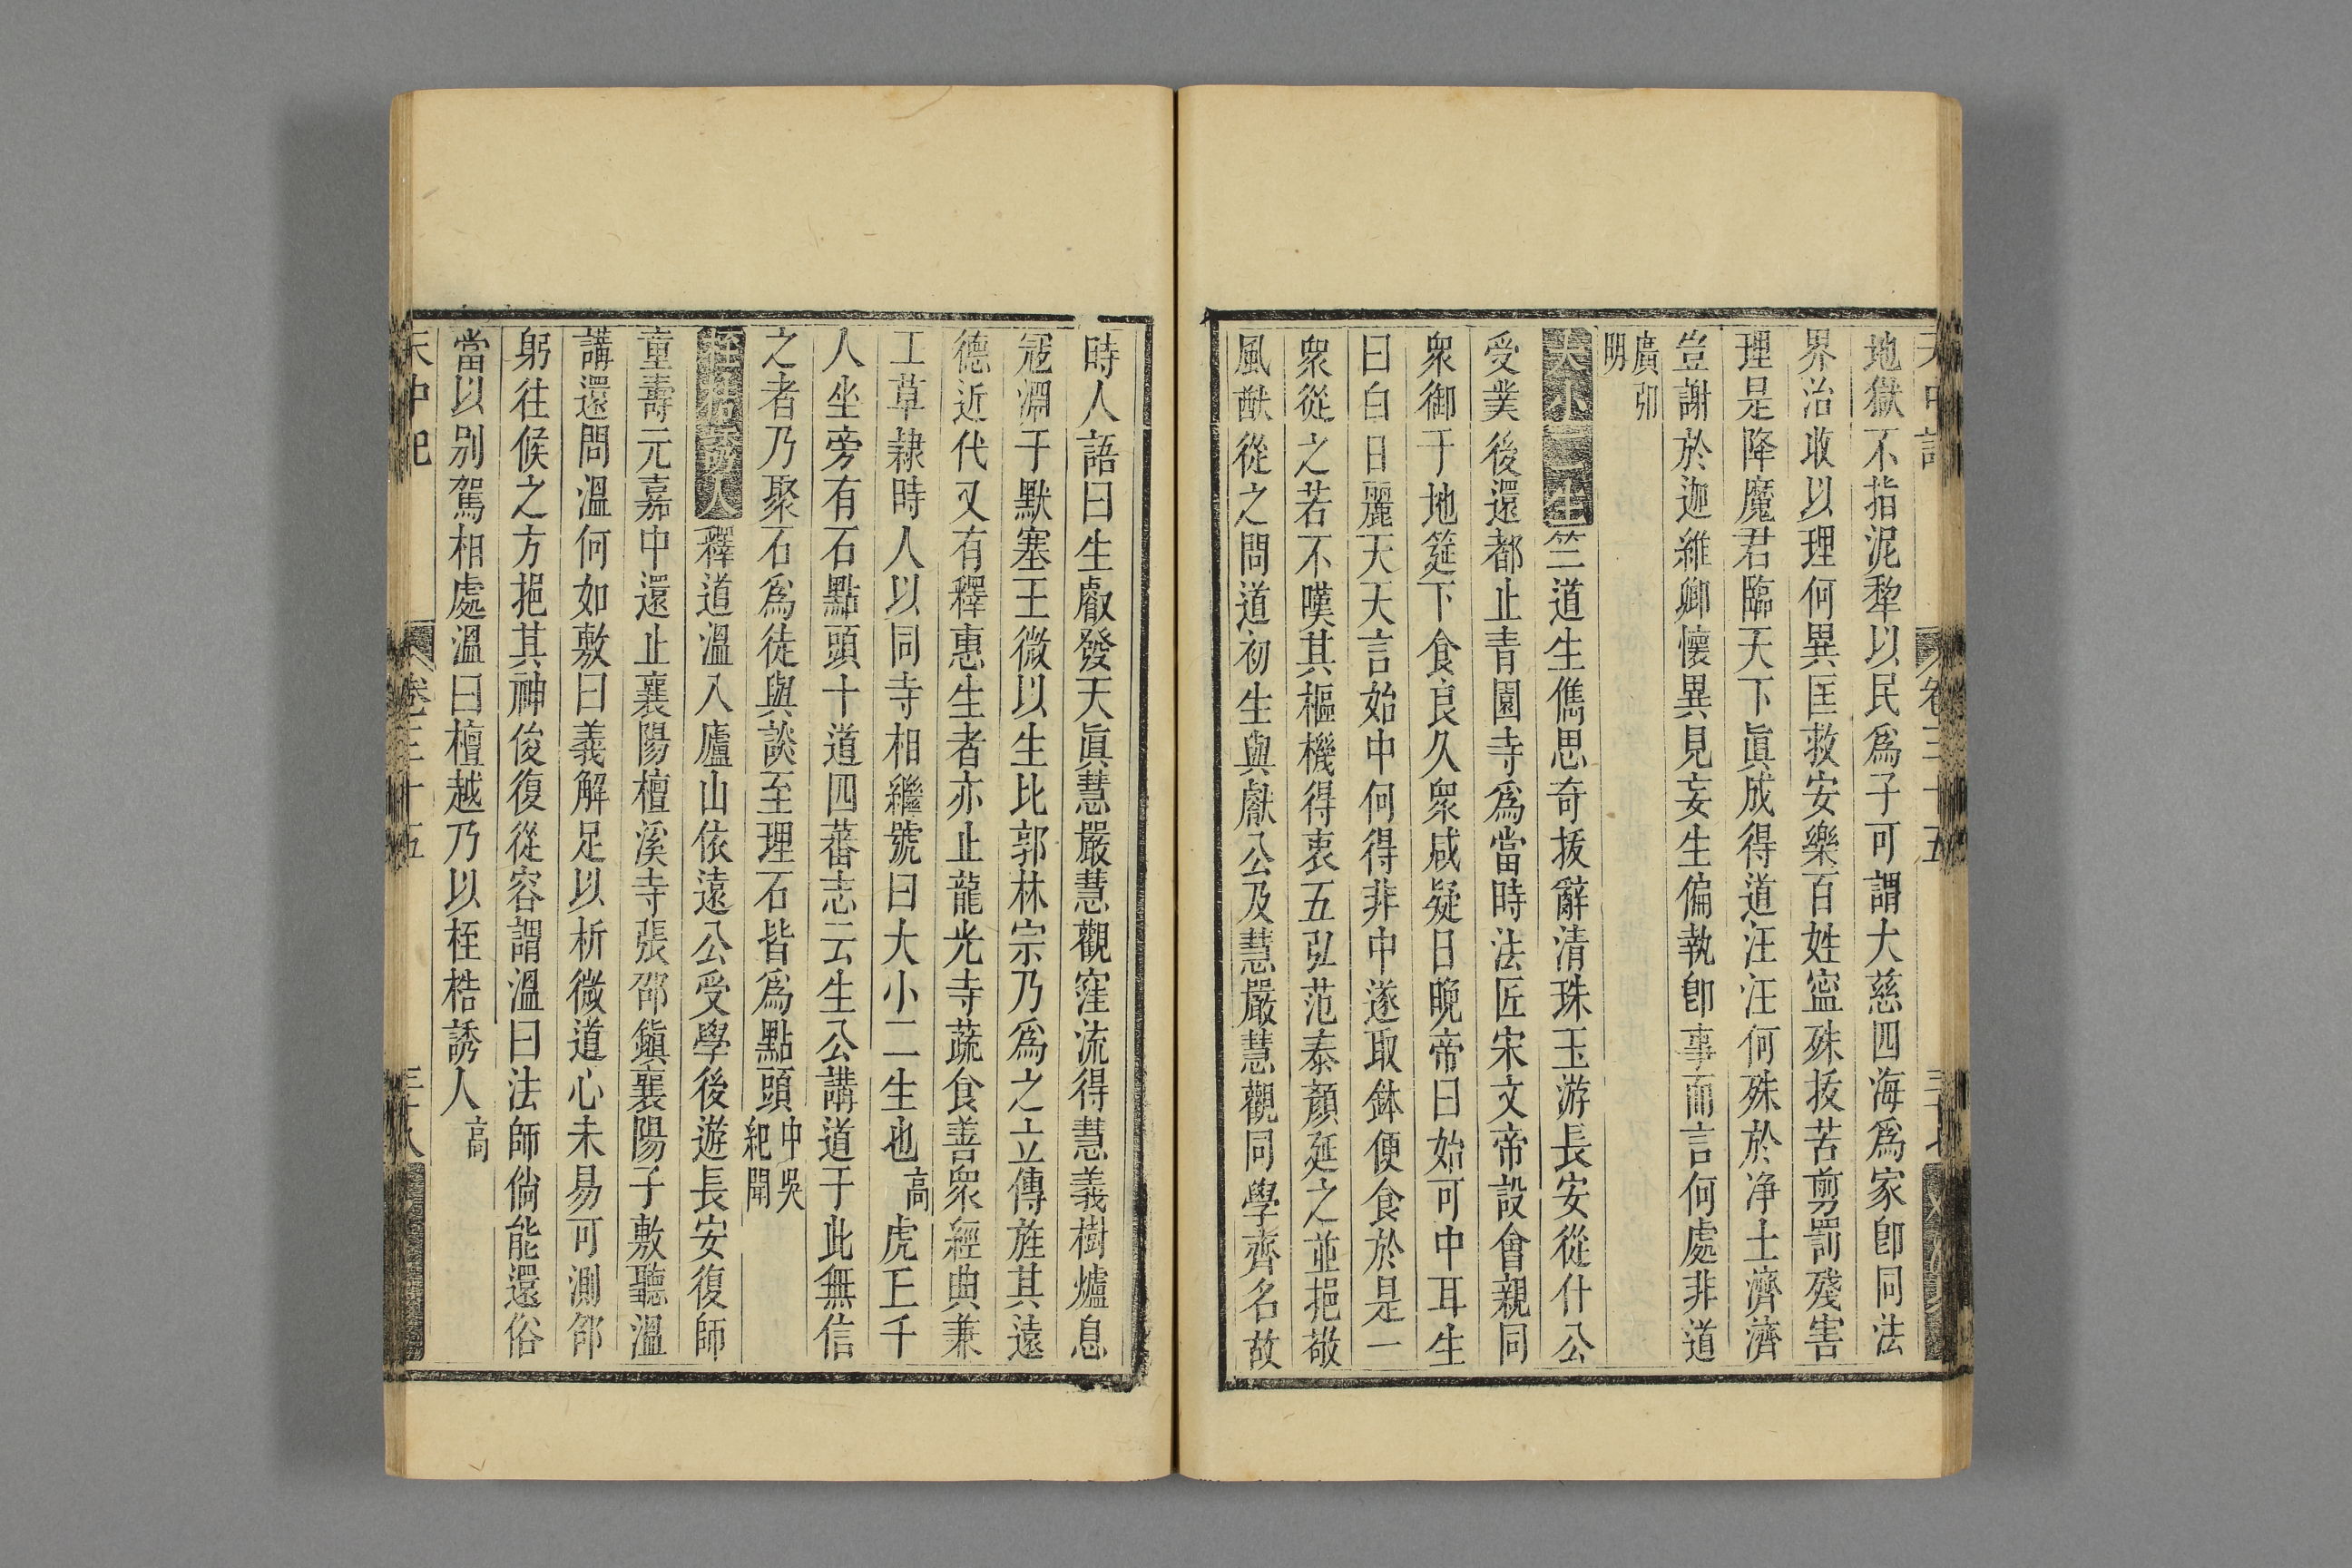 天中記
卷三十五
地獄不指泥犂以民爲子可謂大慈四海爲家卽同法
界治收以理何異匡救安樂百姓寍殊拔苦剪罰殘害
理是降魔君臨天下眞成得道汪汪何殊於净土濟濟
豈謝於迦維卿懷異見妄生偏執卽事而言何處非道
廣弘
明
大小二生竺道生儁思奇拔辭清珠玉游長安從什公
受業後還都止青園寺爲當時法匠宋文帝設會親同
衆御于地筵下食良久衆咸疑日晚帝曰始可中耳生
曰白日麗天天言始中何得非中遂取鉢便食於是一
衆從之若不嘆其樞機得衷五弘范泰顔延之並挹敬
風猷從之問道初生與獻公及慧嚴慧觀同學齊名故
時人語曰生叡發天眞慧嚴慧觀窪流得慧義樹爐息
冠淵于默塞王微以生比郭林宗乃爲之立傳旌其遠
德近代又有釋惠生者亦止龍光寺蔬食善衆經典兼
工草隸時人以同寺相繼號曰大小二生也高虎丘千
人坐旁有石點頭十道四蕃志云生公講道于此無信
之者乃聚石爲徒與談至理石皆爲點頭中吳
紀聞
桎梏誘人釋道溫入廬山依遠公受學後遊長安復師
童壽元嘉中還止襄陽檀溪寺張邵鎭襄陽子敷聽溫
講還問溫何如敷曰義解足以析微道心未易可測邵
躬往候之方挹其神俊復從容謂溫曰法師倘能還俗
當以别駕相處溫曰檀越乃以桎梏誘人高
天中記
卷三十五
三十八